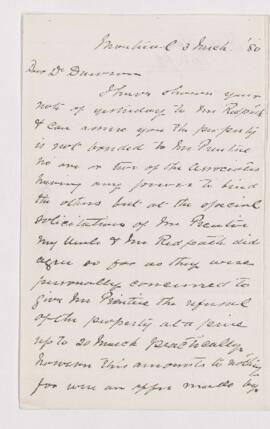 Montreal 3 March '80
Dear Dr Dawson
I have shown your
note of yesterday to Mr Redpath
& can assure you the property
is not bonded to Mr Prentice
no one or two of the Associates
having any power to bind
the others but at the special
solicitations of Mr Prentice
my Uncle & Mr Redpath did
agree so far as they were
personally concerned to
give Mr Prentice the refusal
of the property at a price
up to 20 March practically
however this amounts to nothing
for were an offer made by